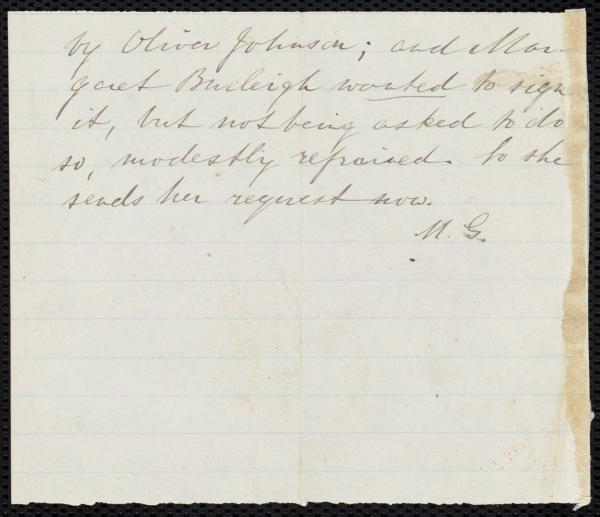 by Oliver Johnson; and Mar-
garet Burleigh wanted to sign
it, but not being asked to do
so, modestly refrained. So she
sends her request now.
M. G.